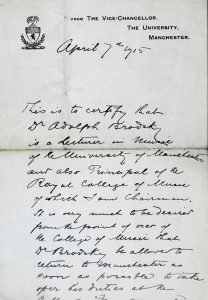 FROM THE VICE-CHANCELLOR,
THE UNIVERSITY,
MANCHESTER.
April 7th 1915
This is to certify that
Dr Adolph Brodsky
is a Lecturer in Music
of the University of Manchester
and also Principal of the
Royal College of Music
of which I am Chairman.
It is very much to be desired
from the point of view of
the College of Music that
Dr Brodsky be allowed to
return to Manchester as
soon as possible to take
over his duties at the